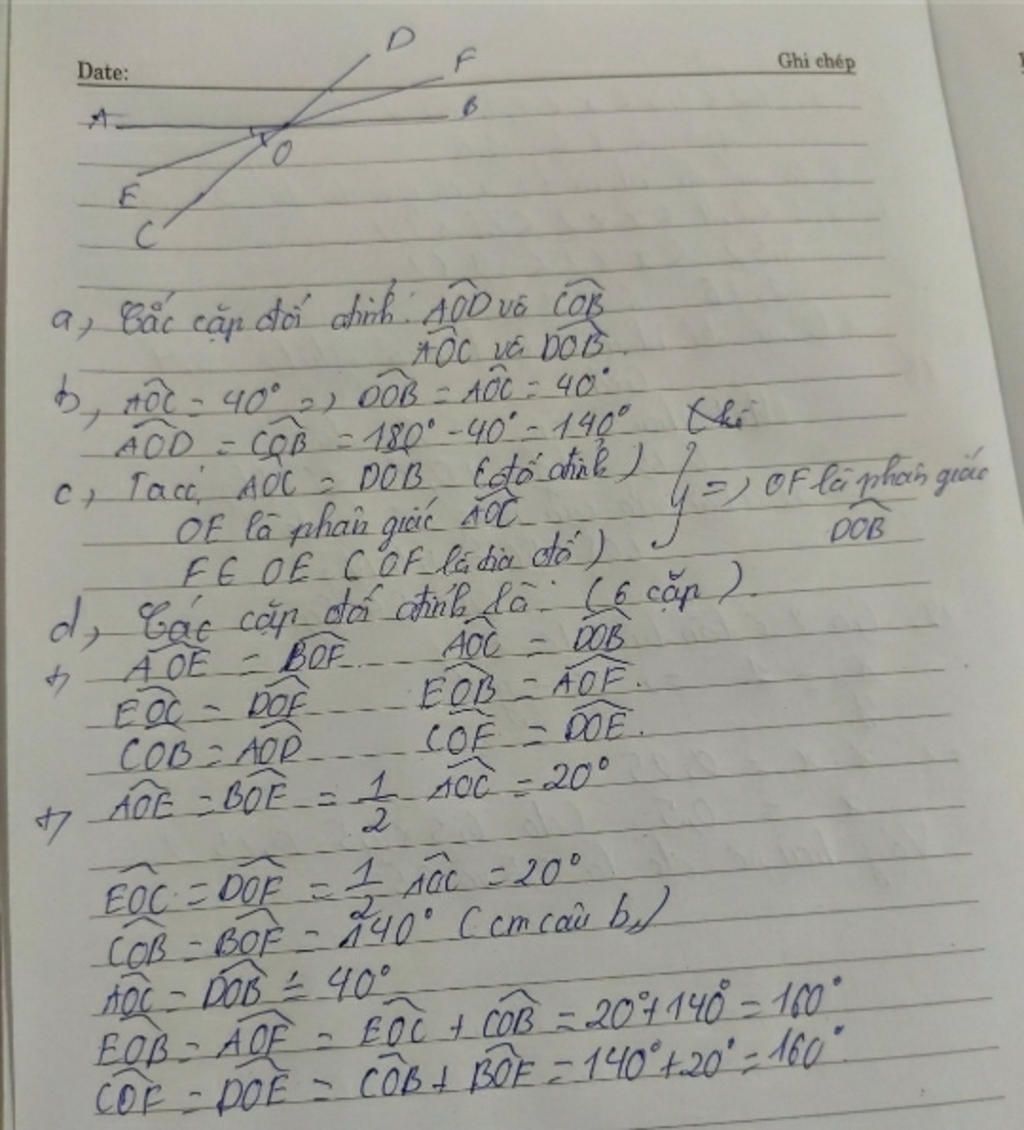 Date:
Ghi chép
D
F
A
B
O
E
C
a, Các cặp đối đỉnh: AOD và COB
AOC và DOB.
b, AOC = 40° => DOB = AOC = 40°
AOD = COB = 180° - 40° = 140°
c, Ta có, AOC = DOB (đối đỉnh)
OE là phân giác AOC
F ∈ OE (OF là tia đối)
} => OF là phân giác
DOB
d, Các cặp đối đỉnh là: (6 cặp)
+, AOE = BOF AOC = DOB
EOC = DOF EOB = AOF.
COB = AOD COF = DOE.
+, AOE = BOF = 1/2 AOC = 20°
EOC = DOF = 1/2 AOC = 20°
COB = BOF = 140° (cm câu b,)
AOC = DOB = 40°
EOB = AOF = EOC + COB = 20° + 140° = 160°
COF = DOE = COB + BOF = 140° + 20° = 160°